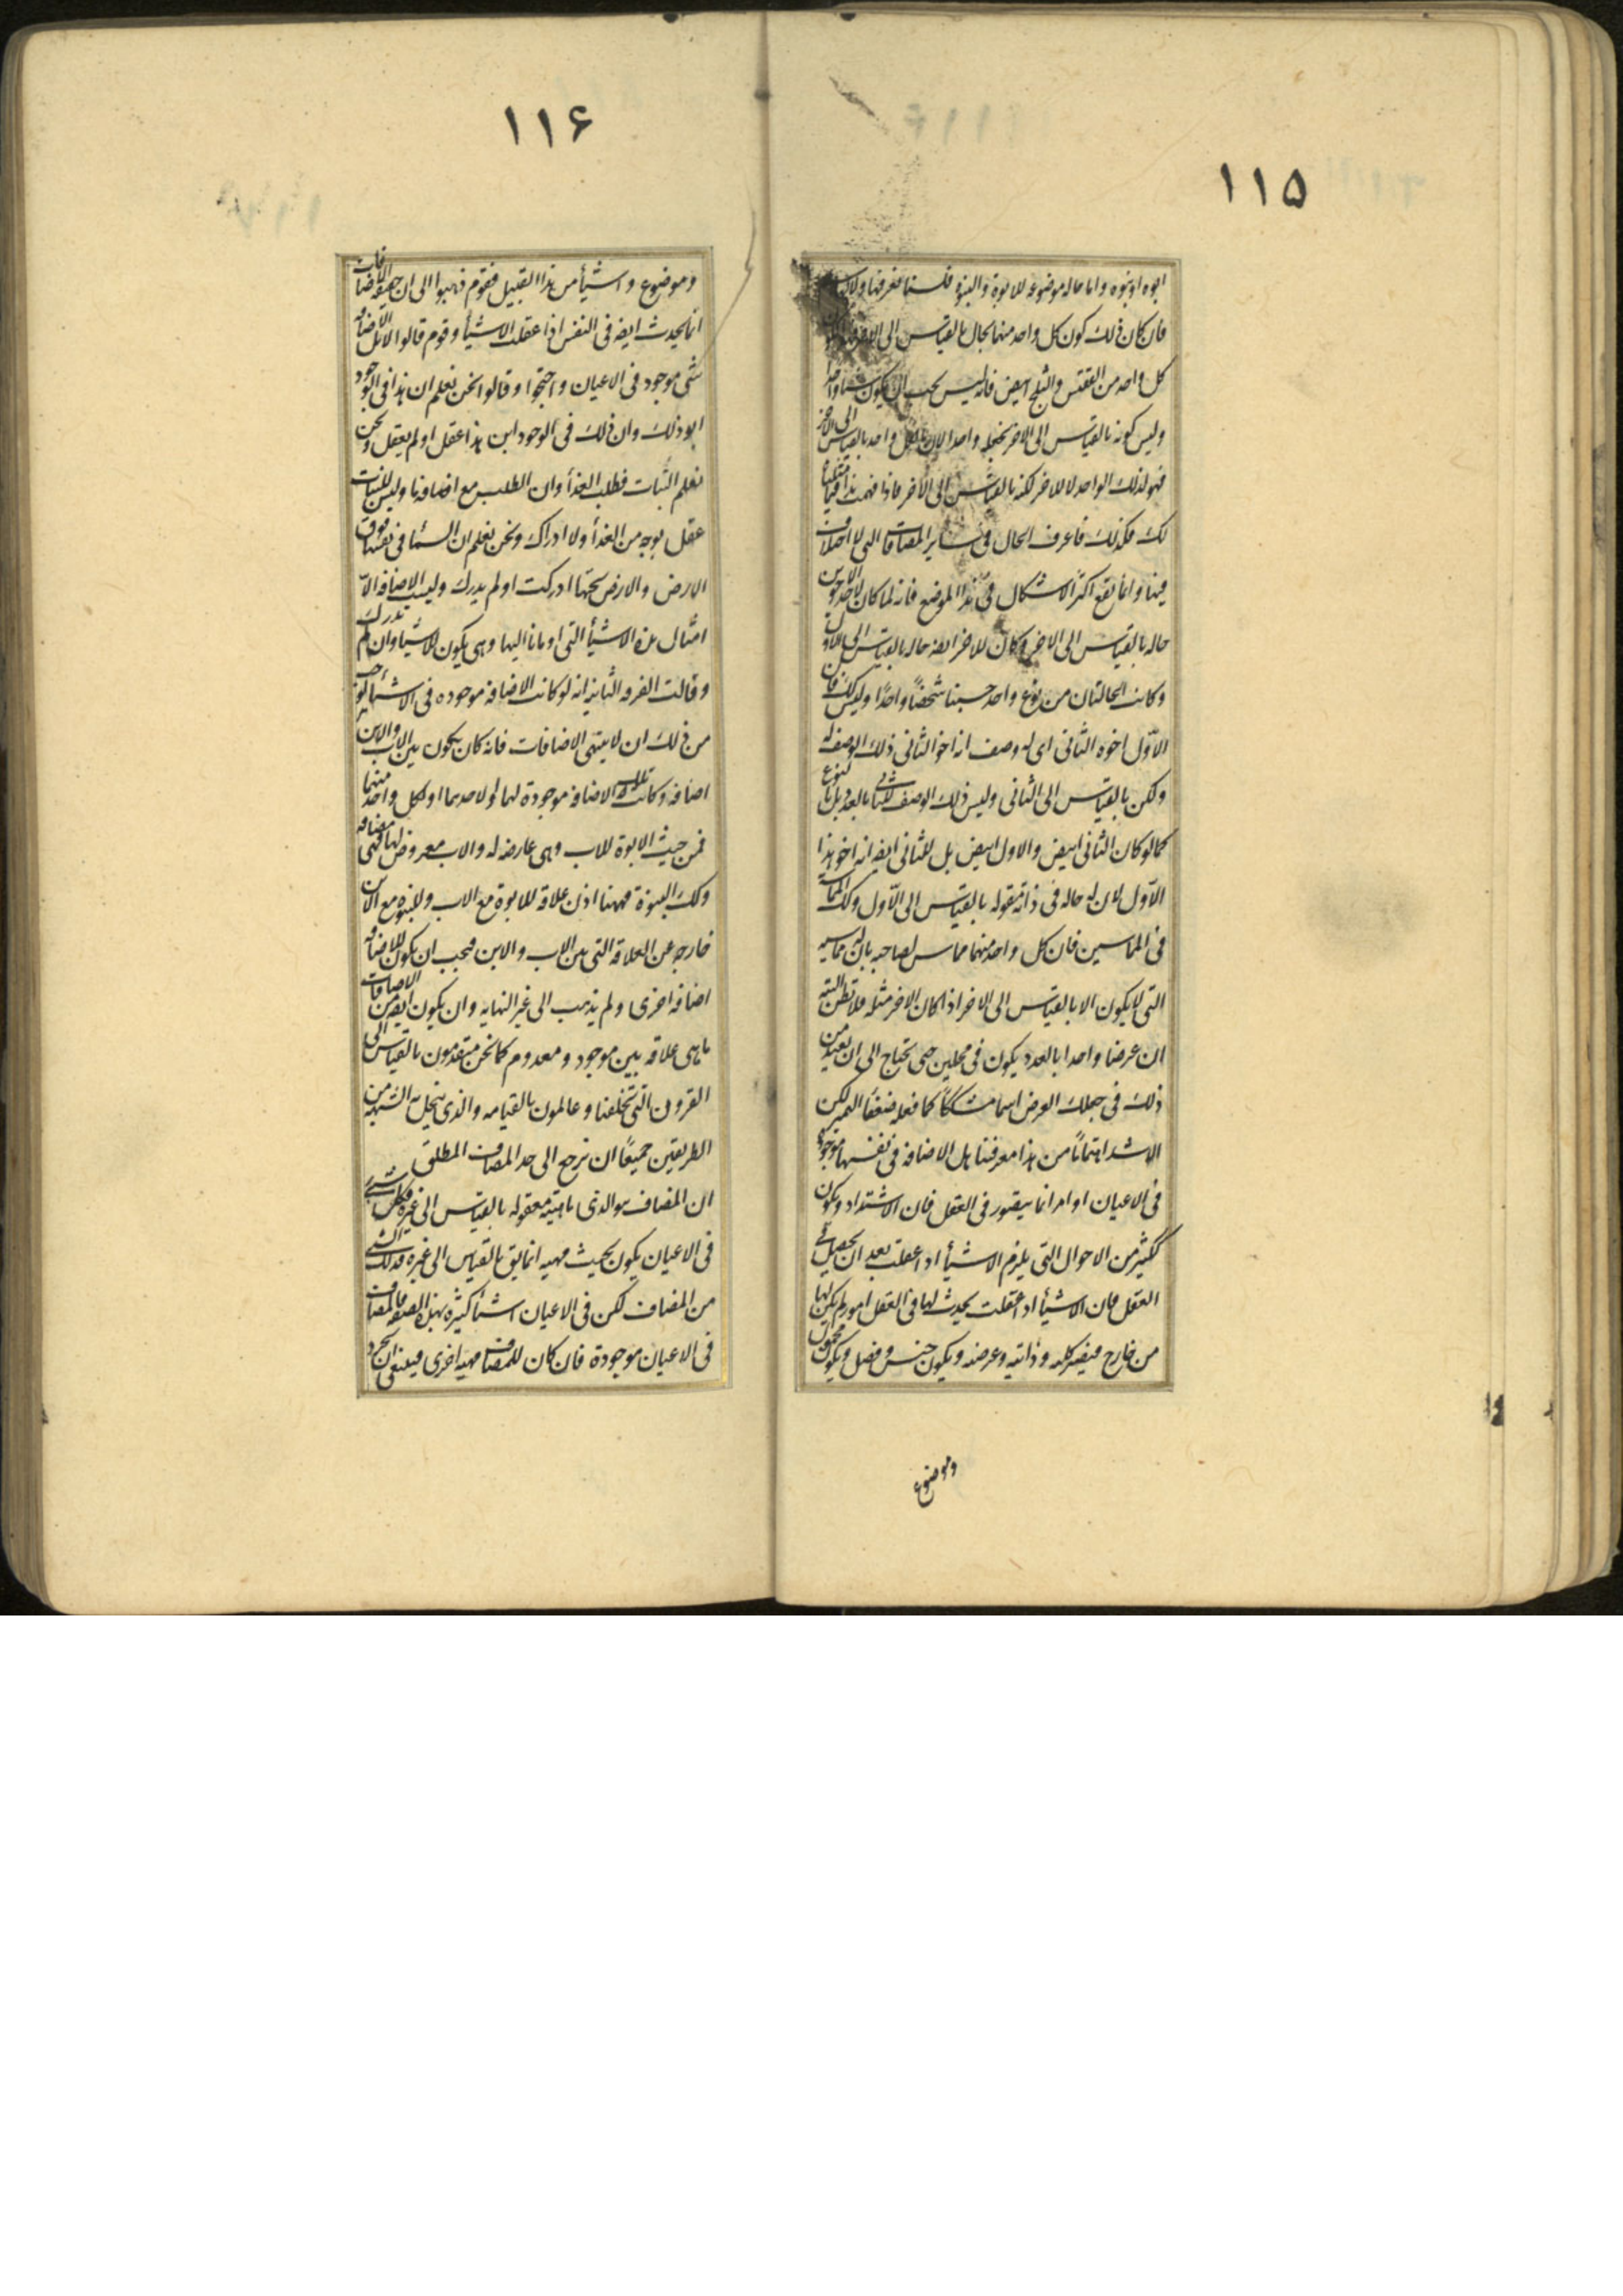 ١١٥
ابوه او بنوه واما حاله موضوعه للابوة والبنوة فلسنا نعرفها ولا
فان كان ذلك كون كل واحد منهما بحال بالقياس الى الاخر
كل واحد من الققنس والثلج ابيض فانه ليس يجب ان يكون شيئا واحدا
وليس كونه بالقياس الى الاخر يجعله واحدا لان ما لكل واحد بالقياس الى الاخر
فهو لذلك الواحد لا للاخر لكنه بالقياس الى الاخر فاذا فهمت هذا فيما مثلناه
لك فكذلك فاعرف الحال فى ساير المضافات التى لا اختلاف
فيها وانما يقع اكثر الاشكال فى هذا الموضع فانه لما كان لاحد الاخوين
حاله بالقياس الى الاخر وكان للاخر ايضه حاله بالقياس الى الاول
وكانت الحالتان من نوع واحد حسبنا شخصاً واحدًا وليس كك فان
الاوّل اخوه الثانى اى له وصف انه اخو الثانى ذلك الوصف له
ولكن بالقياس الى الثانى وليس ذلك الوصف للثانى بالعدد بل بالنوع
كما لو كان الثانى ابيض والاول ابيض بل للثانى ايضه انه اخو هذا
الاوّل لان له حاله فى ذاته مقوله بالقياس الى الاوّل وكك المماسة
فى المماسين فان كل واحد منهما مماس لصاحبه بان له مماسيه
التى لا يكون الا بالقياس الى الاخر اذا كان الاخر مثله فلا تظن البته
ان عرضا واحدا بالعدد يكون فى محلين حتى تحتاج الى ان تعتذر من
ذلك فى جعلك العرض اسما مشككاً كما فعله ضعفأ التمييز لكن
الاشد اهتماماً من هذا معرفتنا هل الاضافه فى نفسها موجودة
فى الاعيان او امر انما يتصور فى العقل فان الاشتداد ويكون
ككثير من الاحوال التى يلزم الاشيأ اذا عقلت بعد ان يحصل فى
العقل فان الاشيأ اذا عقلت يحدث لها فى العقل امور لم يكن لها
من خارج فيصير كليه وذاتيه وعرضه ويكون جنس وفصل ويكون محمول
وموضوع
١١۶
وموضوع واشيأ من هذا القبيل فقوم ذهبوا الى ان حقيقه الاضافات
انما يحدث ايضه فى النفس اذا عقلت الاشيأ وقوم قالوا لا بل الاضافه
شى موجود فى الاعيان واحتجوا وقالوا نحن نعلم ان هذا فى الوجود
ابو ذلك وان ذلك فى الوجود ابن هذا عقل او لم يعقل ونحن
نعلم النّبات فطلب الغذأ وان الطلب مع اضافه ما وليس للنبات
عقل بوجه من الغذأ ولا ادراك ونحن نعلم ان السمأ فى نفسها فوق
الارض والارض تحتها ادركت او لم يدرك وليست الاضافه الاّ
امثال هذه الاشيأ التى اومانا اليها وهى يكون للاشيأ وان لم تدرك
وقالت الفرقه الثانيه انه لو كانت الاضافه موجوده فى الاشيأ لوجب
من ذلك ان لا ينتهى الاضافات فانه كان يكون بين الاب والابن
اضافه وكانت تلك الاضافه موجودة لهما او لاحدهما او لكل واحد منهما
فمن حيث الابوة للاب وهى عارضه له والاب معروض لها فهى مضافه
وكك البنوة فههنا اذن علاقه للابوة مع الاب وللبنوه مع الابن
خارجه عن العلاقه التى بين الاب والابن فيجب ان يكون للاضافه
اضافه اخرى ولم يذهب الى غير النهايه وان يكون ايضه من الاضافات
ما هى علاقه بين موجود ومعدوم كما نحن متقدمون بالقياس الى
القرون التى تخلفنا وعالمون بالقيامه والذى ينحل به الشبهه من
الطريقين جميعًا ان نرجع الى حد المضاف المطلق
ان المضاف هو الذى ماهيته معقوله بالقياس الى غيره فكل شى
فى الاعيان يكون بحيث مهيه انما يق بالقياس الى غيره فذلك الشى
من المضاف لكن فى الاعيان اشيأ كثيره بهذا الصفه فالمضاف
فى الاعيان موجودة فان كان للمضاف مهيه اخرى فينبغى ان يجرد